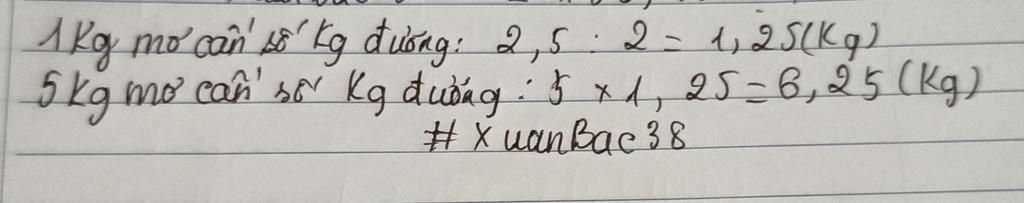 1 Kg mơ cần số Kg đường: 2,5 : 2 = 1,25(Kg)
5 Kg mơ cần số Kg đường: 5 x 1,25 = 6,25 (Kg)
# XuanBac38